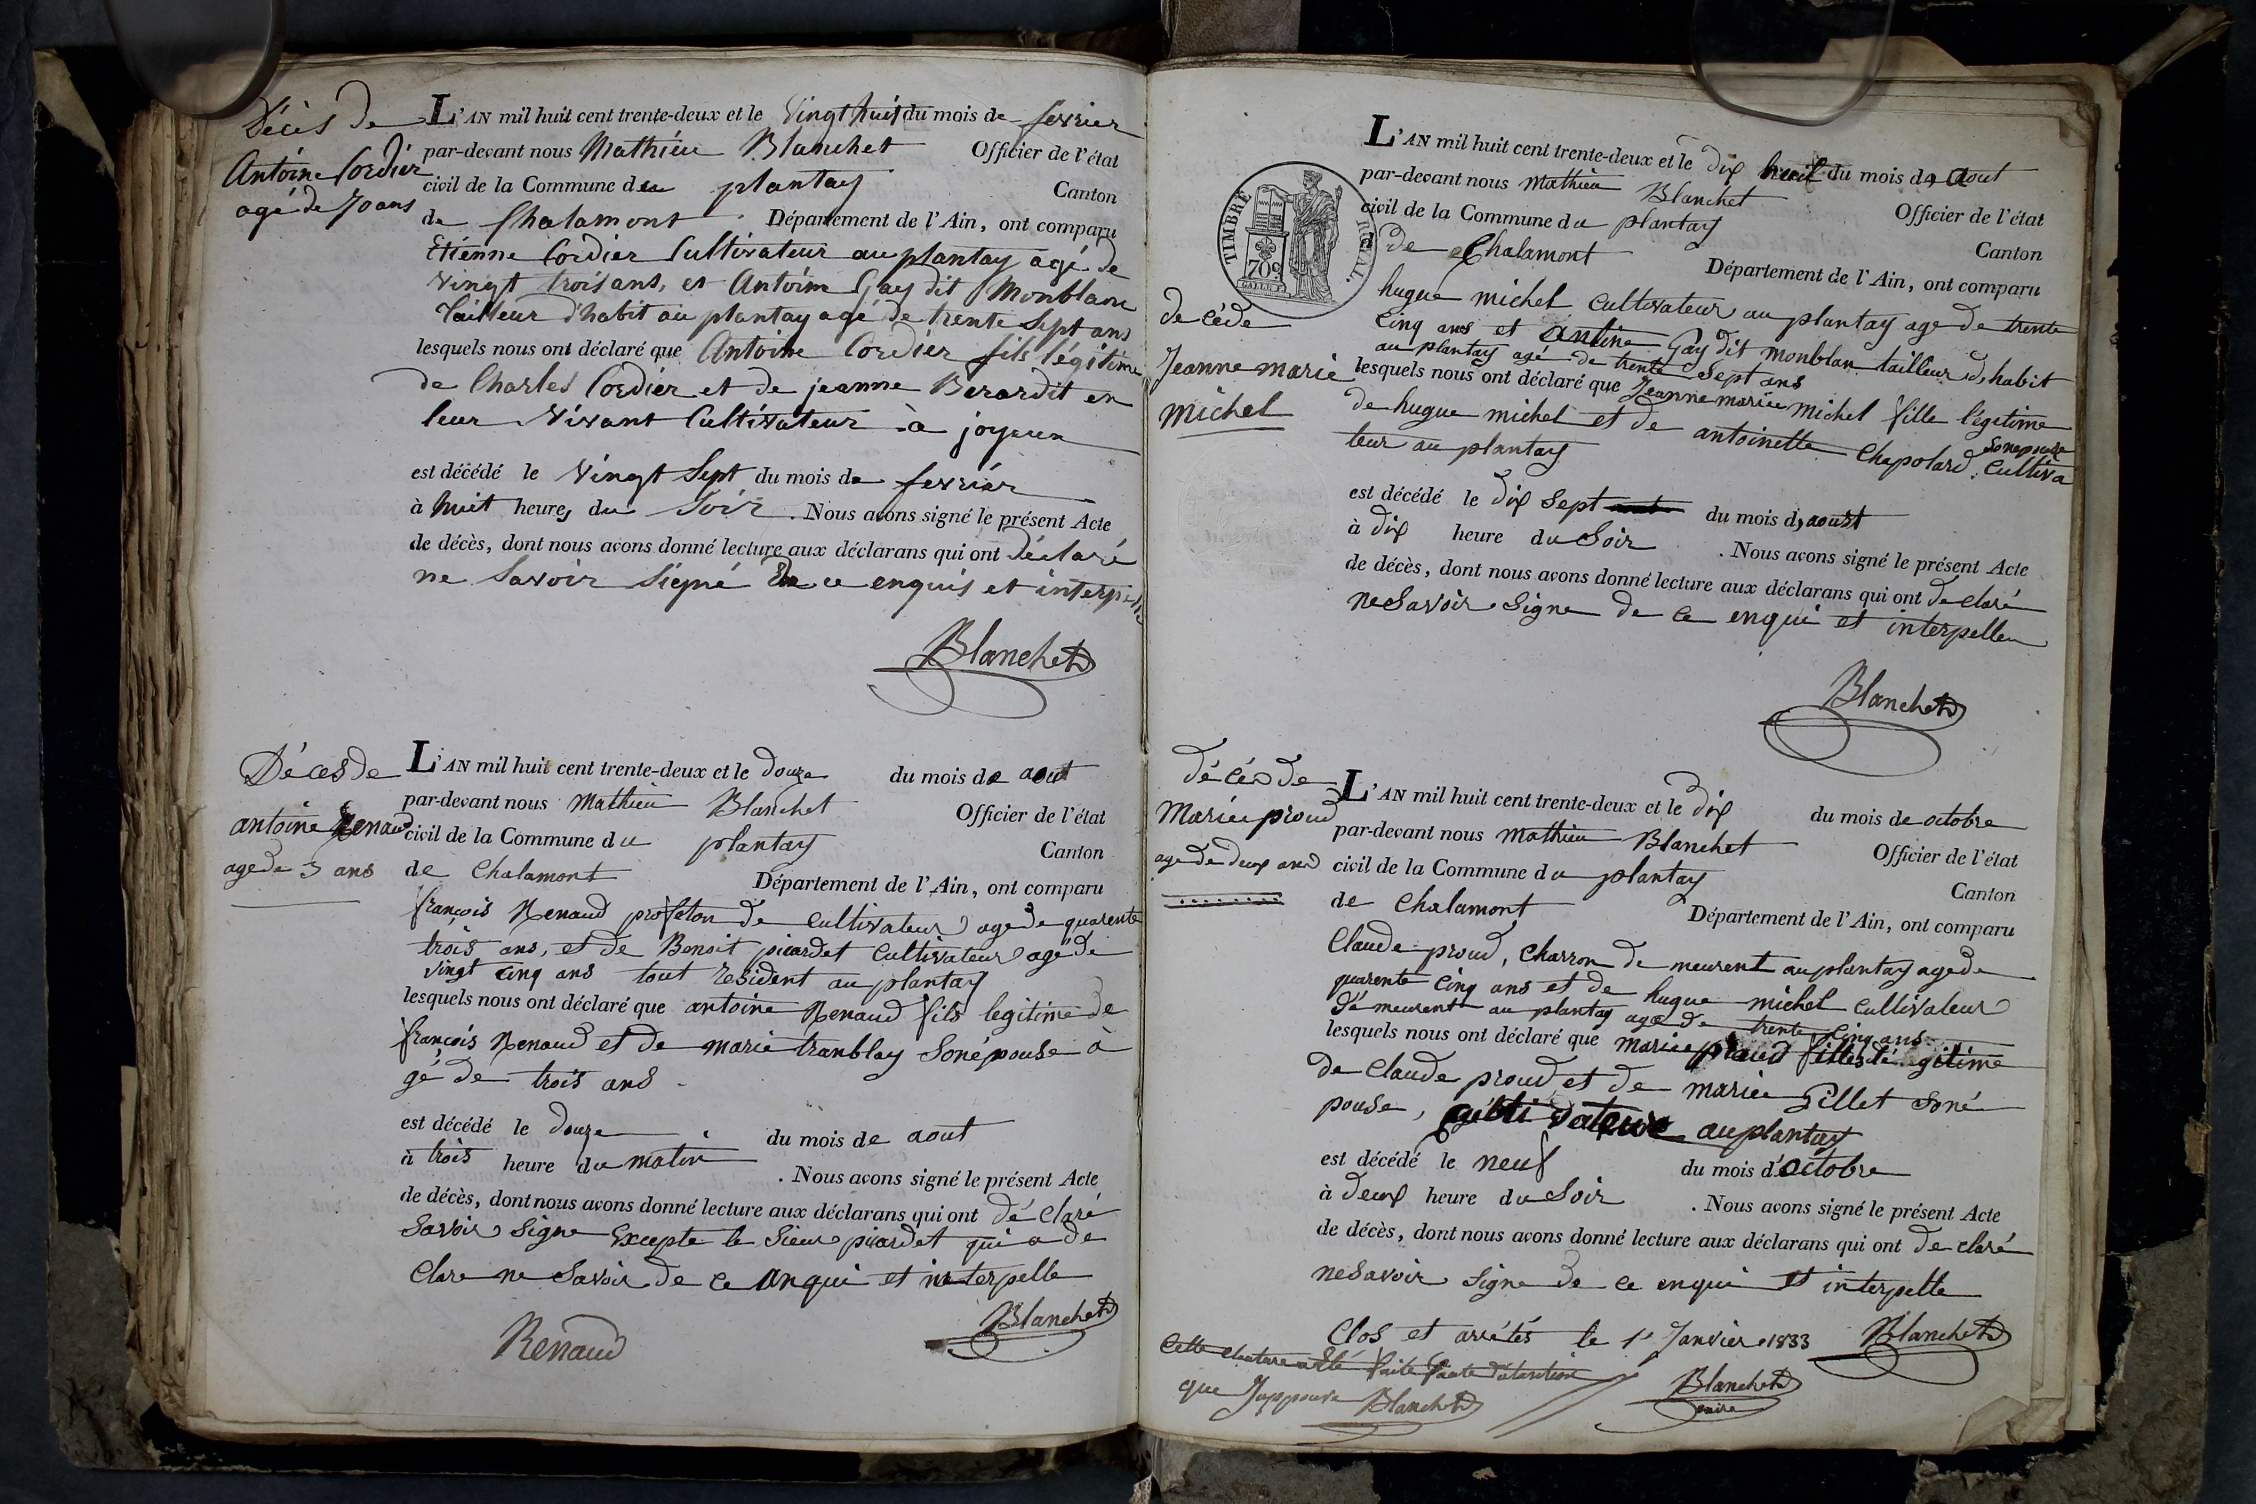 Décès de
Antoine Cordier
agé de 70 ans
L'AN mil huit cent trente-deux et le vingt huit du mois de fevrier
par-devant nous Mathieu Blanchet Officier de l'état
civil de la Commune du plantay Canton
de Chalamont . Département de l'Ain, ont comparu
Etienne Cordier Cultivateur au plantay agé de
vingt trois ans, et Antoine Gay dit Monblanc
Tailleur d'habit au plantay agé de trente Sept ans
lesquels nous ont déclaré que Antoine Cordier fils légitime
de Charles Cordier et de jeanne Berardit en
leur vivant Cultivateur à joyeux
est décédé le vingt Sept du mois de fevrier
à huit heures du Soir . Nous avons signé le présent Acte
de décès, dont nous avons donné lecture aux déclarans qui ont déclaré
ne Savoir Signé De ce enquis et interpellé
Blanchet
Déces de
antoine Renaud
age de 3 ans
L'AN mil huit cent trente-deux et le douze du mois de aout
par-devant nous Mathieu Blanchet Officier de l'état
civil de la Commune du plantay Canton
de Chalamont Département de l'Ain, ont comparu
françois Renaud de cultivateur age de quarente
trois ans, et de Benoit picardet cultivateur agé de
vingt cinq ans tout resident au plantay
lesquels nous ont déclaré que antoine Renaud fils legitime de
françois Renaud et de marie tranblay Son épouse a
gé de trois ans
est décédé le douze du mois de aout
à trois heure du matin . Nous avons signé le présent Acte
de décès, dont nous avons donné lecture aux déclarans qui ont dé claré
Savoir Signe Excepte le Sieur picardet qui a de
clare ne Savoir de ce anqui et interpelle
Renaud
Blanchet
TIMBRE ROYAL.
70c.
de céde
Jeanne marie
michel
L'AN mil huit cent trente-deux et le dix huit du mois d, aout
par-devant nous Mathieu Blanchet Officier de l'état
civil de la Commune du plantay Canton
de Chalamont Département de l'Ain, ont comparu
hugue michel cultivateur au plantay age de trente
Cinq ans et antine Gay dit monblan tailleur d, habit
au plantay agé de trente Sept ans
lesquels nous ont déclaré que Jeanne marie michel fille légitime
de hugue michel et de antoinette Chapolard Son epouse Cultiva
teur au plantay
est décédé le dix Sept du mois d, aoust
à dix heure du Soir . Nous avons signé le présent Acte
de décès, dont nous avons donné lecture aux déclarans qui ont de claré
ne Savoir Signe de ce enqui et interpelle
Blanchet
dé cés de
Marie proud
age de deux ans
L'AN mil huit cent trente-deux et le dix du mois de octobre
par-devant nous Mathieu Blanchet Officier de l'état
civil de la Commune du plantay Canton
de Chalamont Département de l'Ain, ont comparu
Claude proud, Charron de meurent au plantay age de
quarente Cinq ans et de hugue michel cultivateur
dé meurent au plantay age de trente Cinq ans
lesquels nous ont déclaré que marie proud fille lé gitime
de Claude proud et de marie Gillet Son é
pouse, cultivateur au plantay
est décédé le neuf du mois d'octobre
à deux heure du Soir . Nous avons signé le présent Acte
de décès, dont nous avons donné lecture aux déclarans qui ont de claré
ne Savoir Signe de ce enqui et interpelle
Blanchet
Clos et arrêtés le 1er Janvier 1833
Blanchet
maire
Cette cloture a été faite faute d'atantion
que J'approuve Blanchet